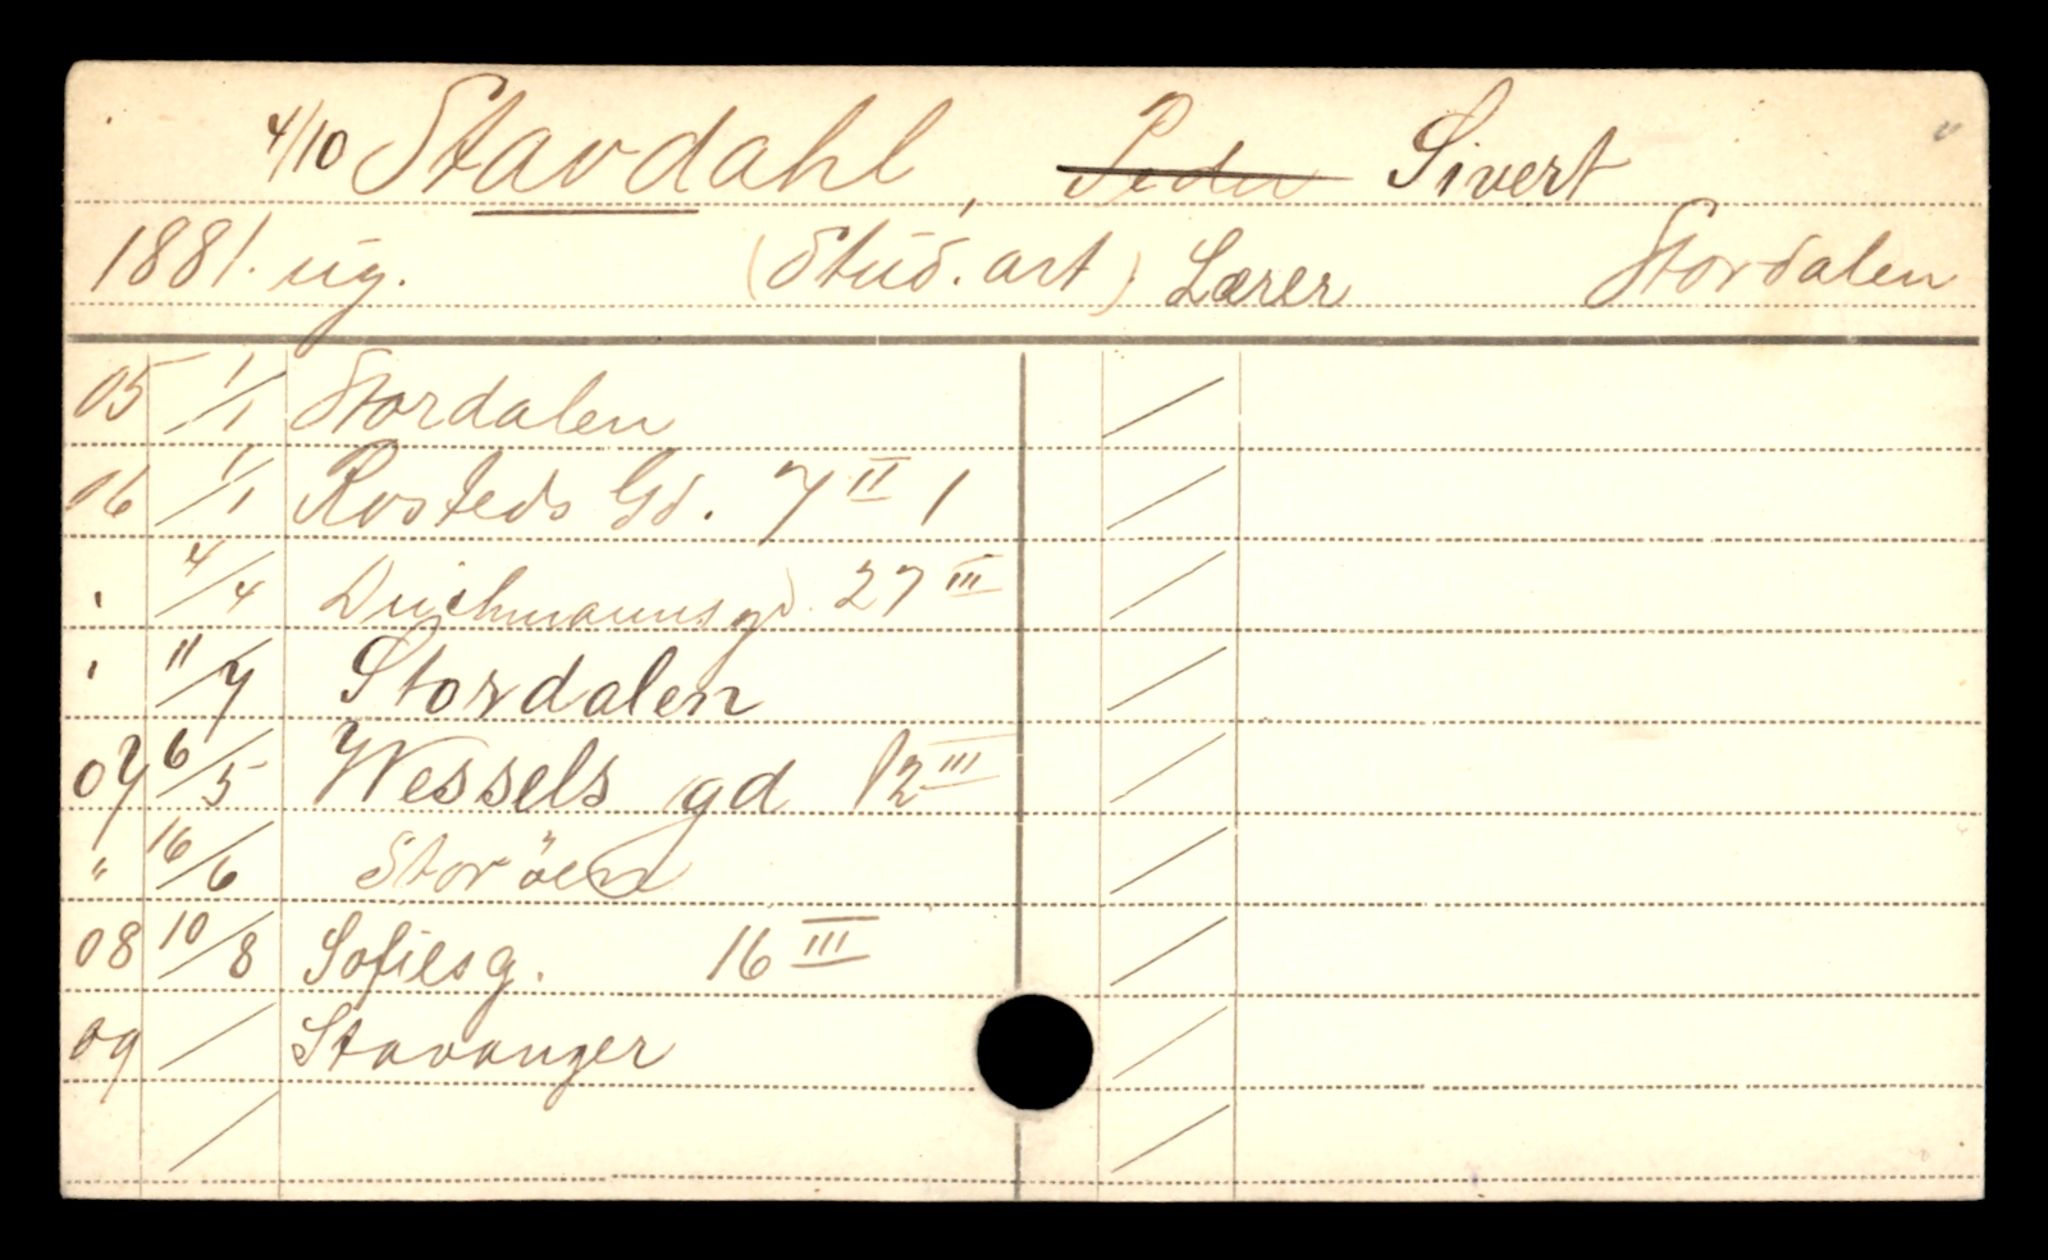 4/10 Stavdahl, Peder Sivert
1881. ug. (Stud. art) Lærer Stordalen
05 1/1 Stordalen
06 1/1 Rosteds Gd. 7 II 1
" 4/4 Deichmannsgd. 27 III
" 11/7 Stordalen
07 6/5 Wessels gd 12 III
" 16/6 Storöen
08 10/8 Sofiesg. 16 III
09 / Stavanger